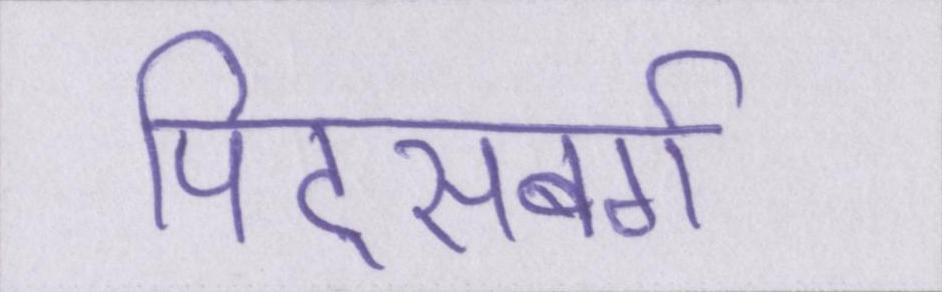 पिट्सबर्ग